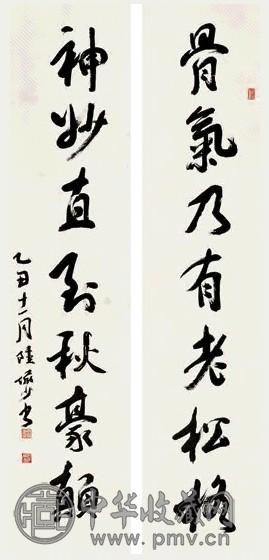 骨氣乃有老松格
神妙直到秋豪顛
乙丑十一月陸儼少書
中华收藏网
www.pmv.cn